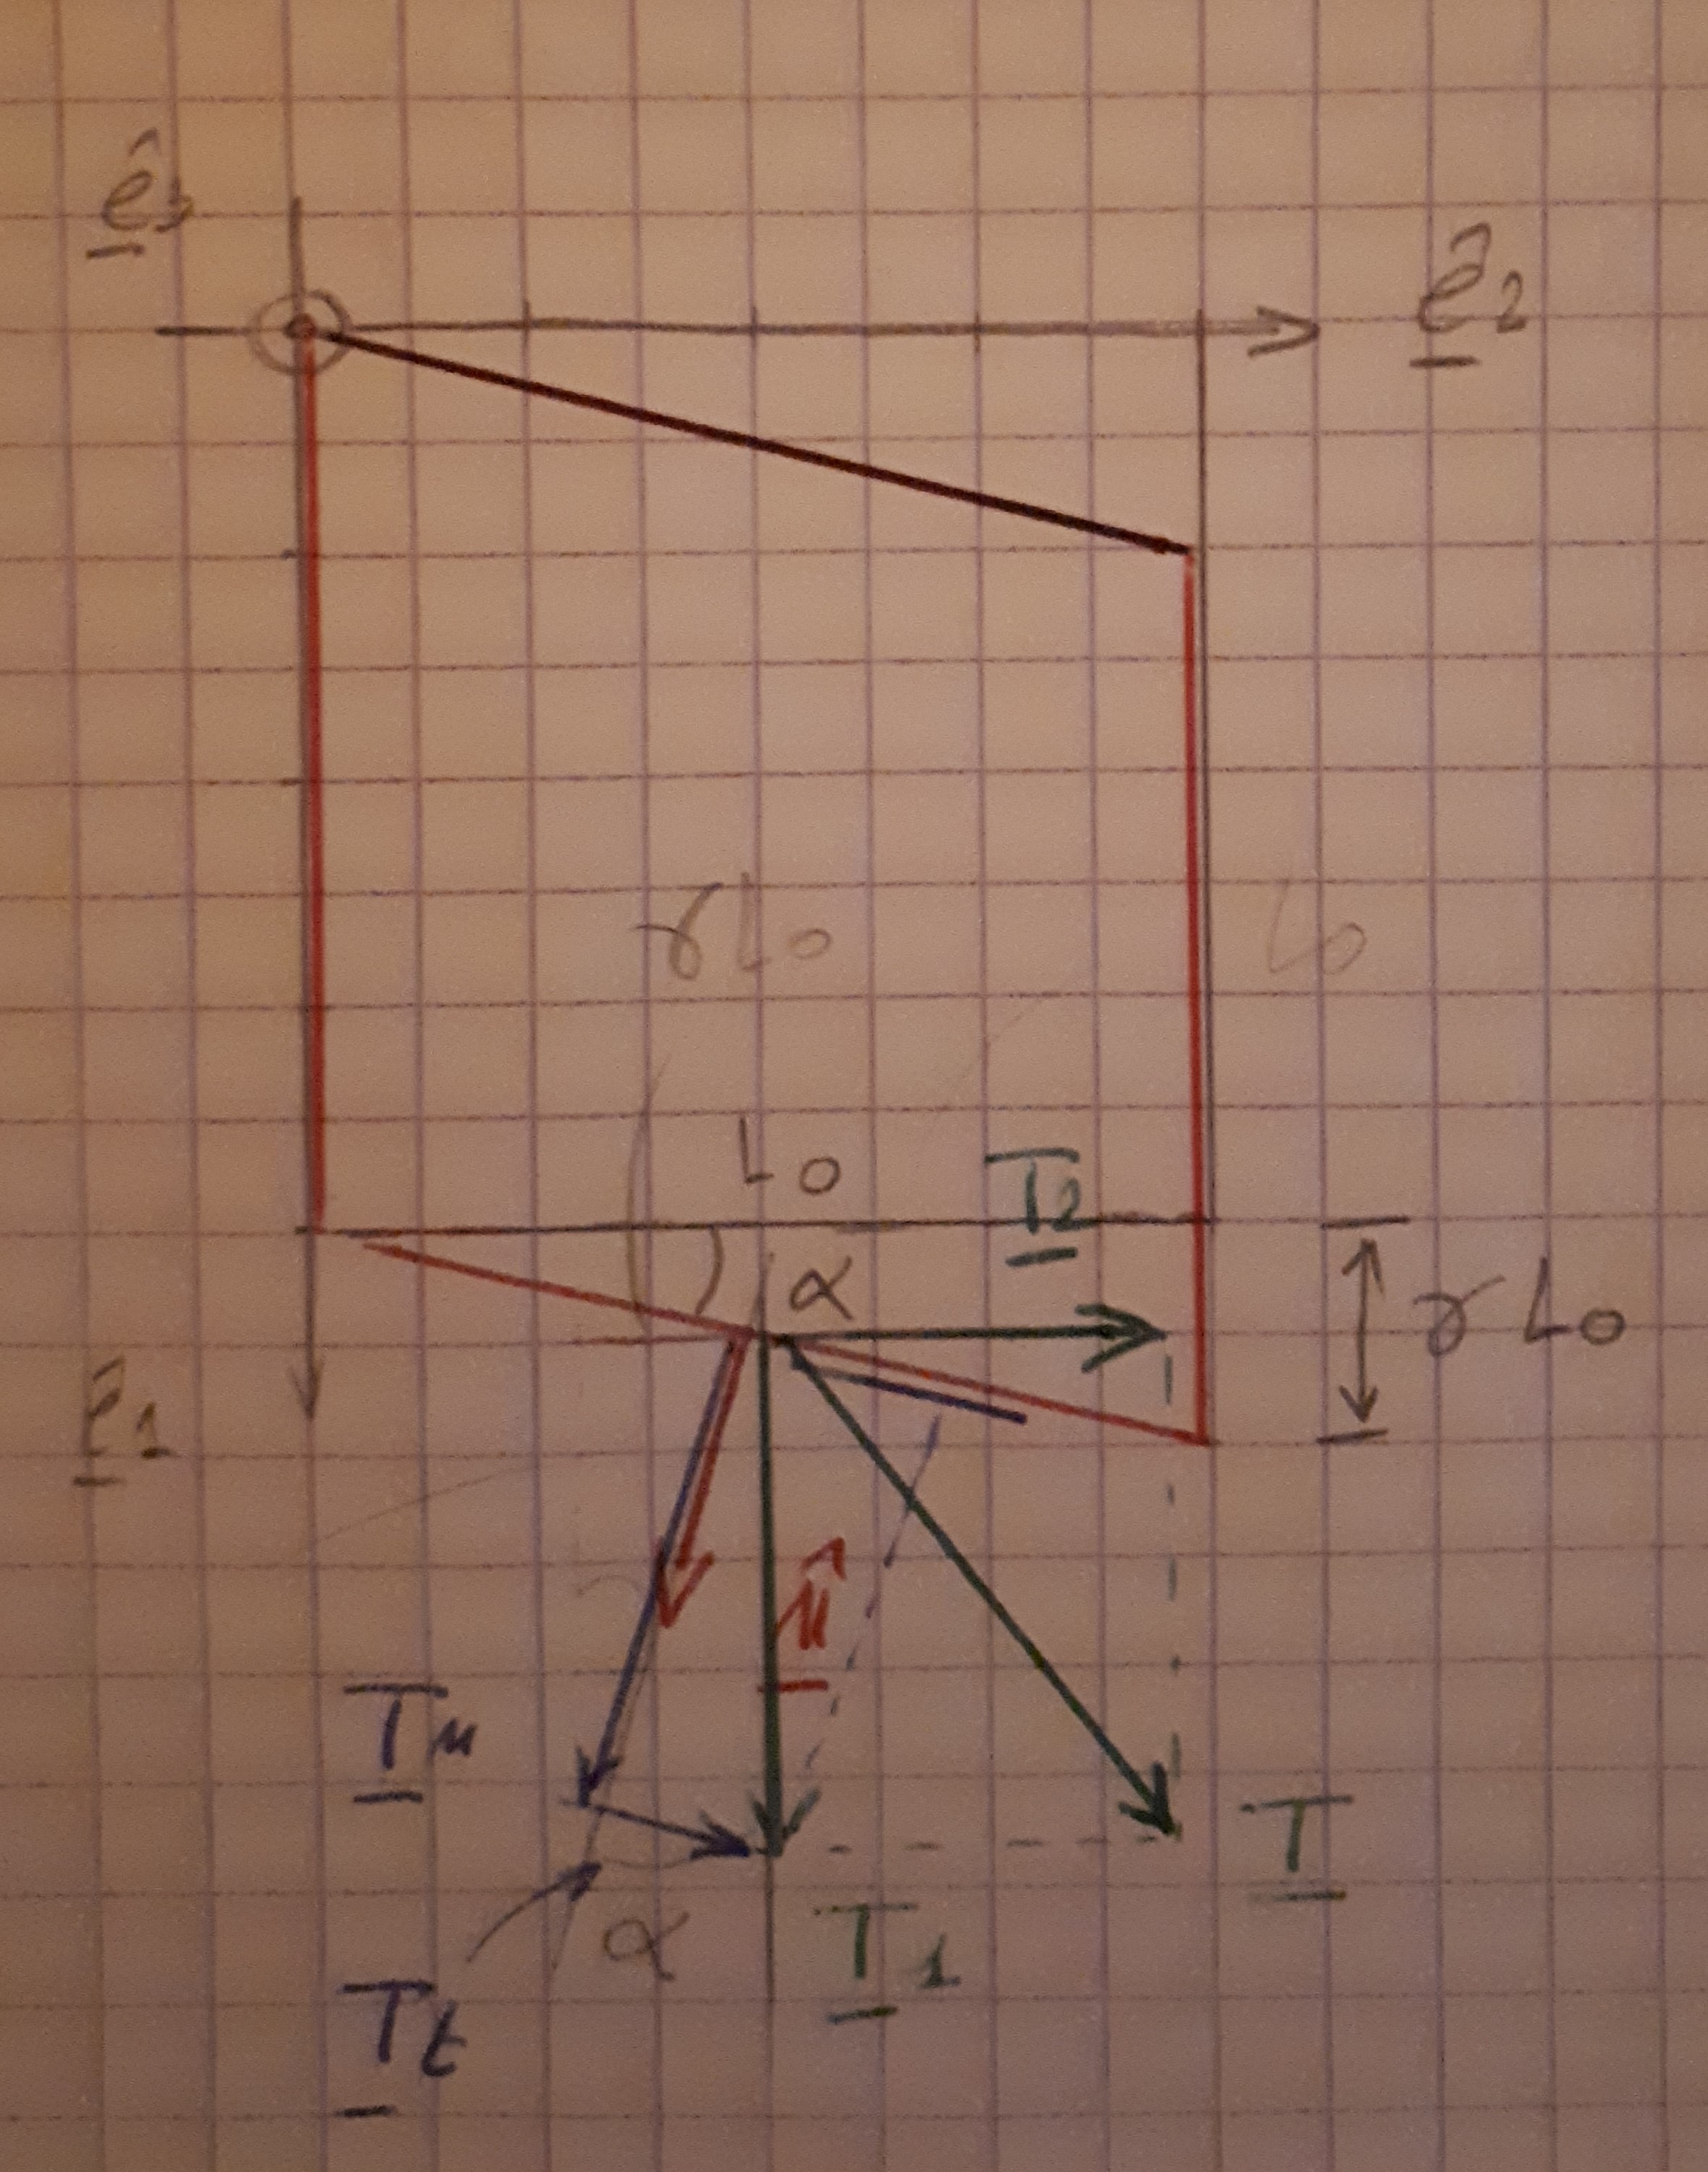 ê3
ê2
γL0
L0
L0
T2
α
γL0
ê1
n̂
Tn
T
α
T1
Tt